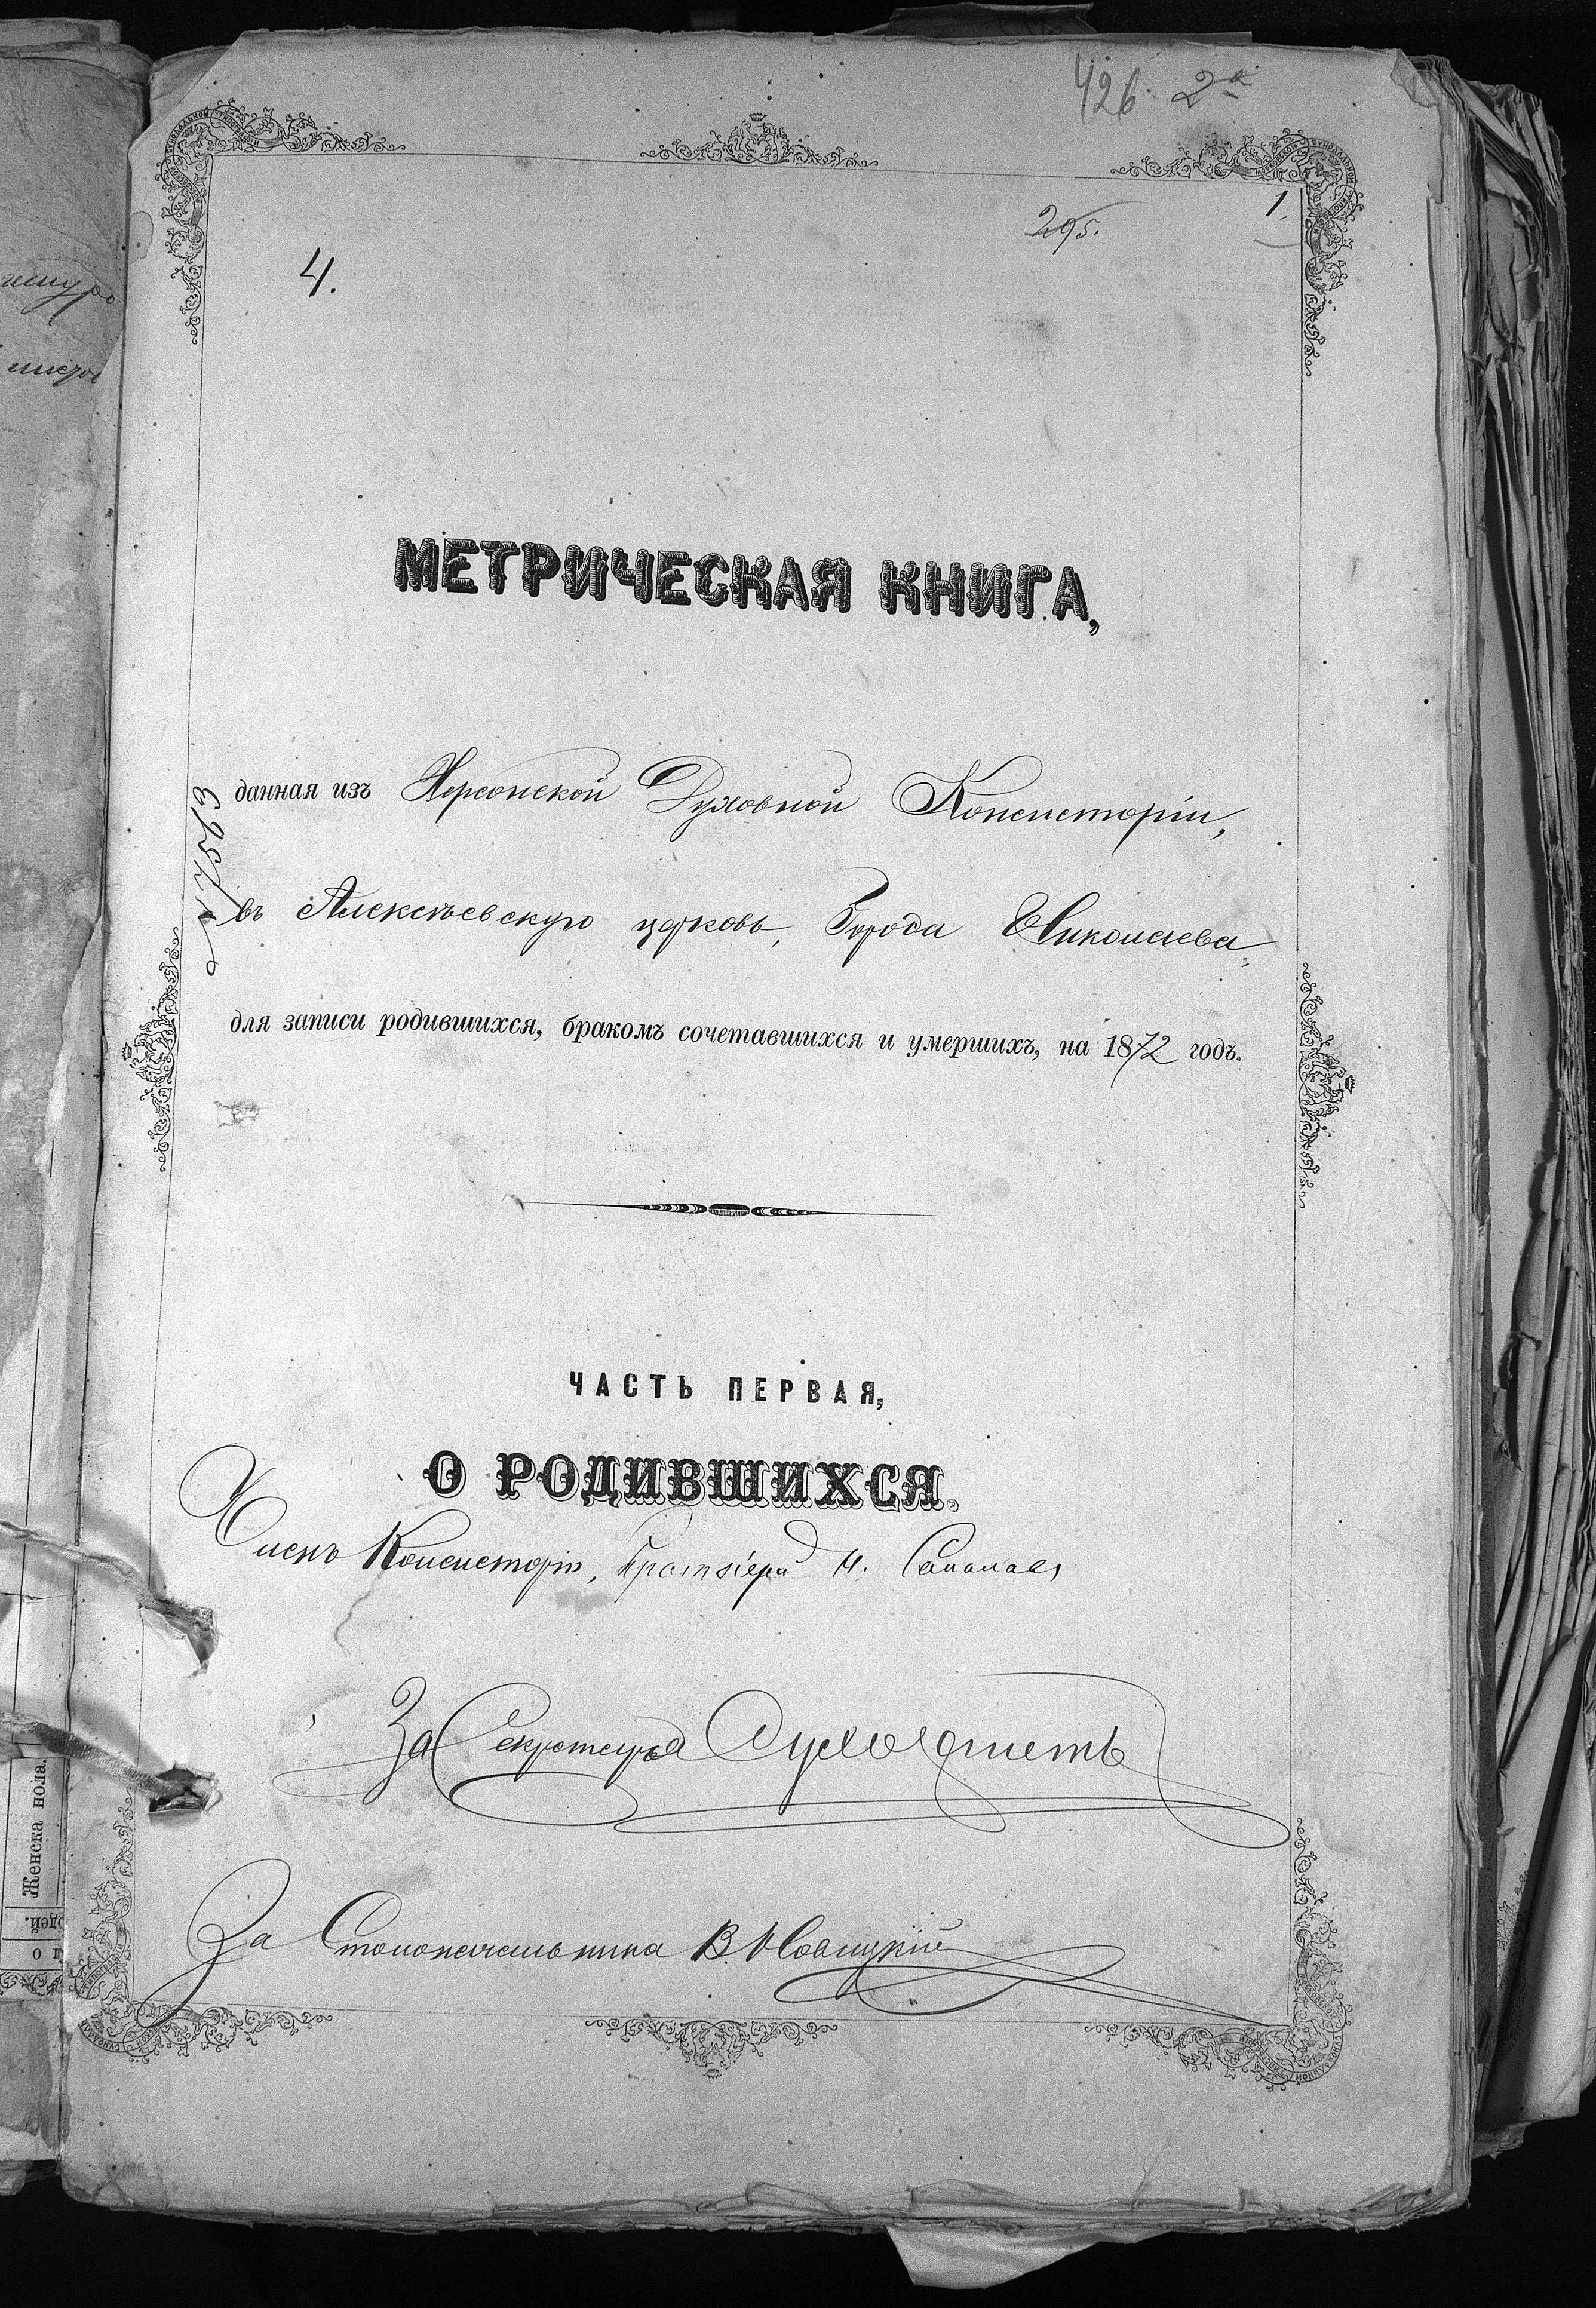 426. 2а
295.
1.
4.
МЕТРИЧЕСКАЯ КНИГА,
данная изъ Херсонской Духовной Консисторіи,
въ Алексѣевскую церковь, Города Николаева,
для записи родившихся, бракомъ сочетавшихся и умершихъ, на 1872 годъ.
ЧАСТЬ ПЕРВАЯ,
О РОДИВШИХСЯ.
Членъ Консисторіи, Протоіерей
За Секретаря
За Столоначальника В. Новицкій
Женска пола.